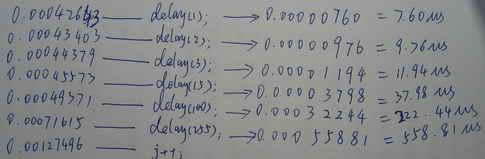 0.00042643 —— delay(1); → 0.00000760 = 7.60us
0.00043403 —— delay(2); → 0.00000976 = 9.76us
0.00044379 —— delay(3); → 0.00001194 = 11.94us
0.00045573 —— delay(15); → 0.00003798 = 37.98us
0.00049371 —— delay(100); → 0.00032244 = 322.44us
0.00071615 —— delay(255); → 0.00055881 = 558.81us
0.00127496 —— j++;